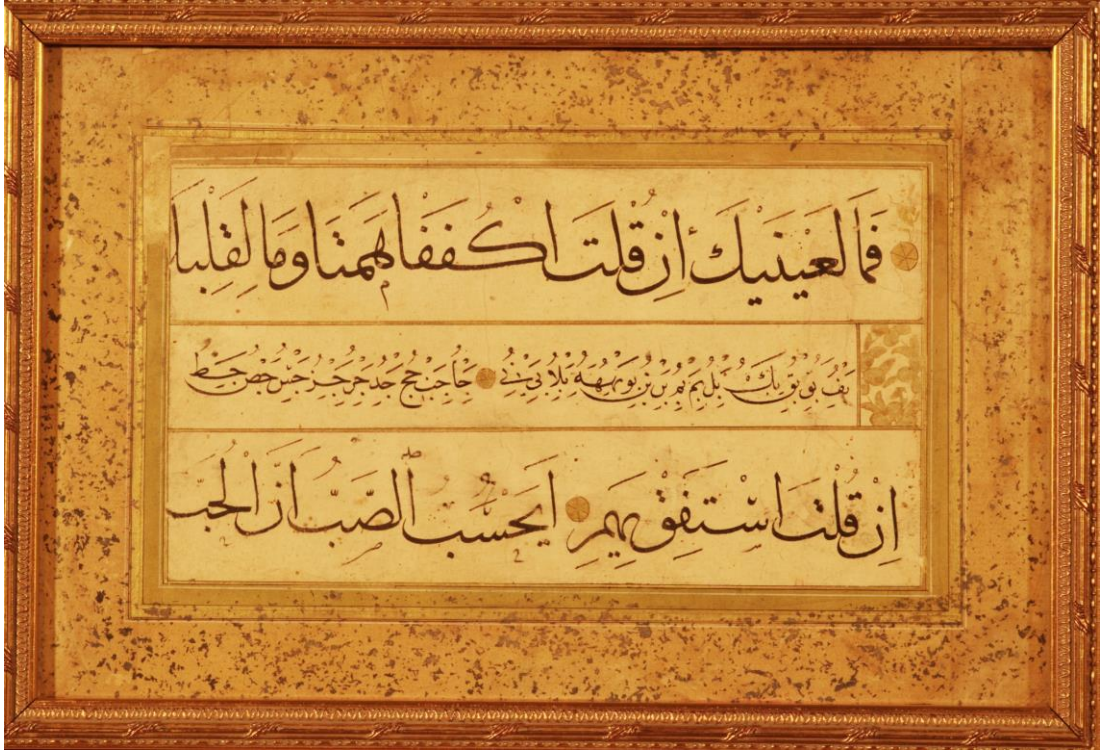 فَمَا لعَيْنَيْكَ إِنْ قُلْتَ اكْفُفَا هَمَتَا وَمَا لِقَلْبِكَ
بف بق بك بل بم بم بن بن بو به بهه بلا بى بى جا جب جج جد جر جر جس جص جط
اِنْ قُلْتَ اسْتَفِقْ يَهِمِ اَيَحْسَبُ الصَّبُّ اَنَّ الْحُبَّ